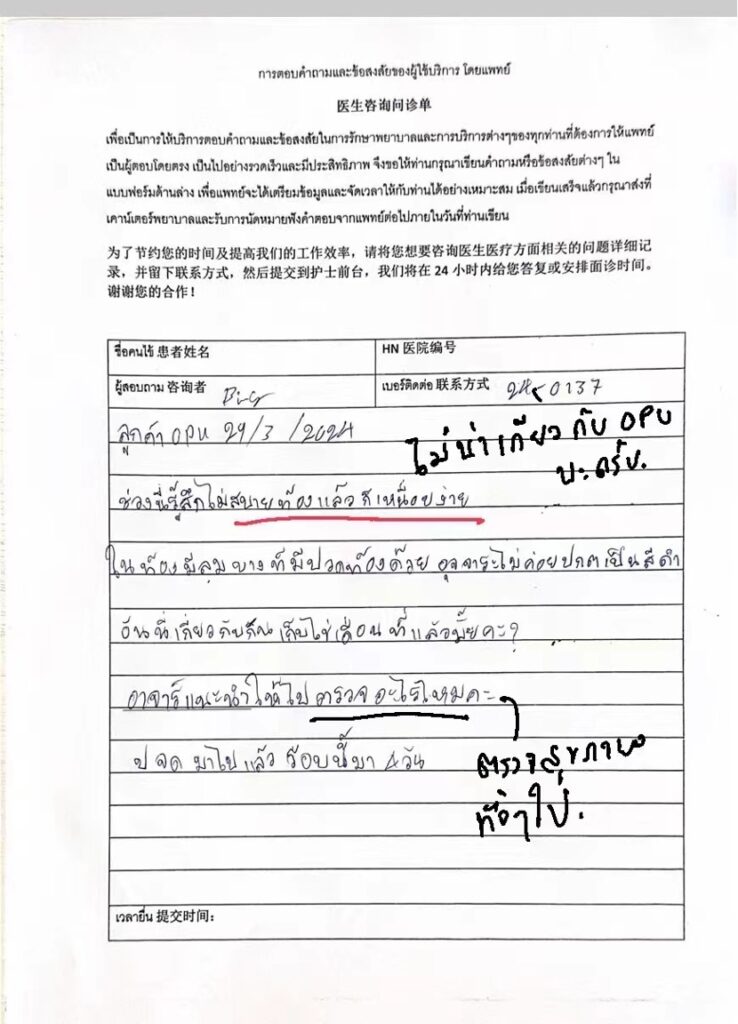 การตอบคำถามและข้อสงสัยของผู้ใช้บริการ โดยแพทย์
医生咨询问诊单
เพื่อเป็นการให้บริการตอบคำถามและข้อสงสัยในการรักษาพยาบาลและการบริการต่างๆของทุกท่านที่ต้องการให้แพทย์
เป็นผู้ตอบโดยตรง เป็นไปอย่างรวดเร็วและมีประสิทธิภาพ จึงขอให้ท่านกรุณาเขียนคำถามหรือข้อสงสัยต่างๆ ใน
แบบฟอร์มด้านล่าง เพื่อแพทย์จะได้เตรียมข้อมูลและจัดเวลาให้กับท่านได้อย่างเหมาะสม เมื่อเขียนเสร็จแล้วกรุณาส่งที่
เคาน์เตอร์พยาบาลและรับการนัดหมายฟังคำตอบจากแพทย์ต่อไปภายในวันที่ท่านเขียน
为了节约您的时间及提高我们的工作效率，请将您想要咨询医生医疗方面相关的问题详细记
录，并留下联系方式，然后提交到护士前台，我们将在 24 小时内给您答复或安排面诊时间。
谢谢您的合作！
ชื่อคนไข้ 患者姓名
HN 医院编号
ผู้สอบถาม 咨询者
เบอร์ติดต่อ 联系方式
ลูกค้า OPU 29/3 /2024
ไม่น่าเกี่ยวกับ OPU
นะครับ.
ช่วงนี้รู้สึกไม่สบายท้องแล้วก็เหนื่อยง่าย
ในท้องมีลม บางที่มีปวดท้องด้วย อุจจาระไม่ค่อยปกติเป็นสีดำ
อันนี้เกี่ยวกับกันเก็บไข่เดือนที่แล้วมั้ยคะ?
อาจารย์แนะนำให้ไปตรวจอะไรไหมคะ
ตรวจสุขภาพ
ทั่วๆไป.
ป จด มาไปแล้ว รอบนี้มา 4 วัน
เวลายื่น 提交时间：